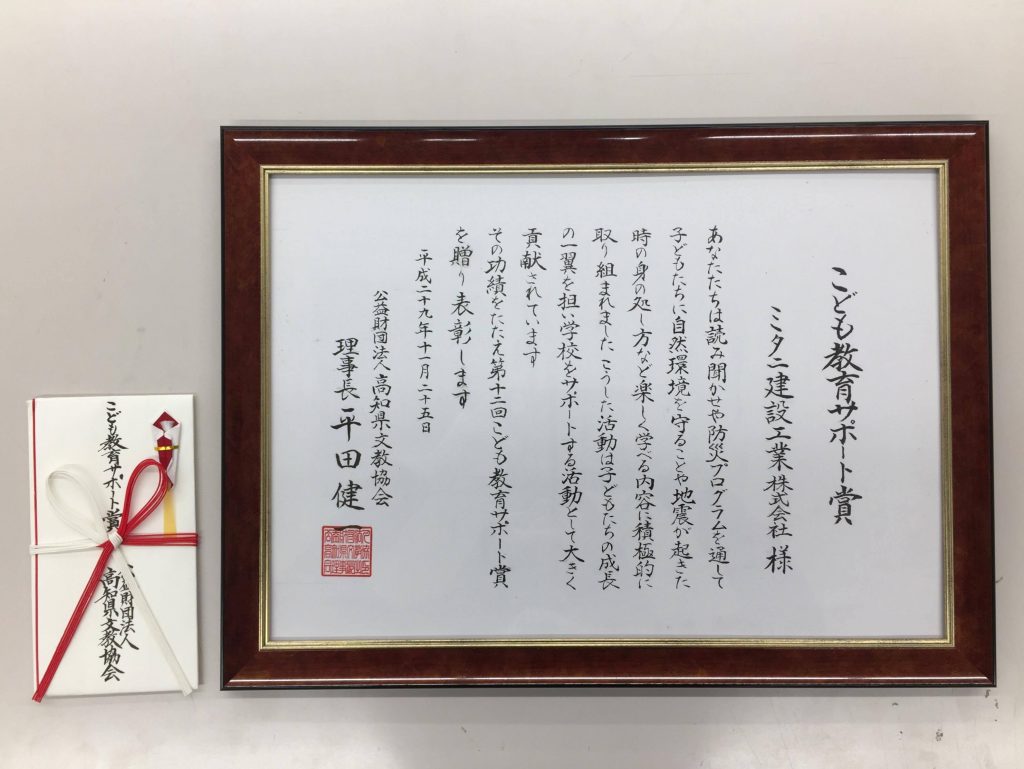 こども教育サポート賞
ミタニ建設工業株式会社 様
あなたたちは読み聞かせや防災プログラムを通して
子どもたちに自然環境を守ることや地震が起きた
時の身の処し方など楽しく学べる内容に積極的に
取り組まれました こうした活動は子どもたちの成長
の一翼を担い学校をサポートする活動として大きく
貢献されています
その功績をたたえ第十二回こども教育サポート賞
を贈り表彰します
平成二十九年十一月二十五日
公益財団法人高知県文教協会
理事長 平田健一
こども教育サポート賞
財団法人
高知県文教協会